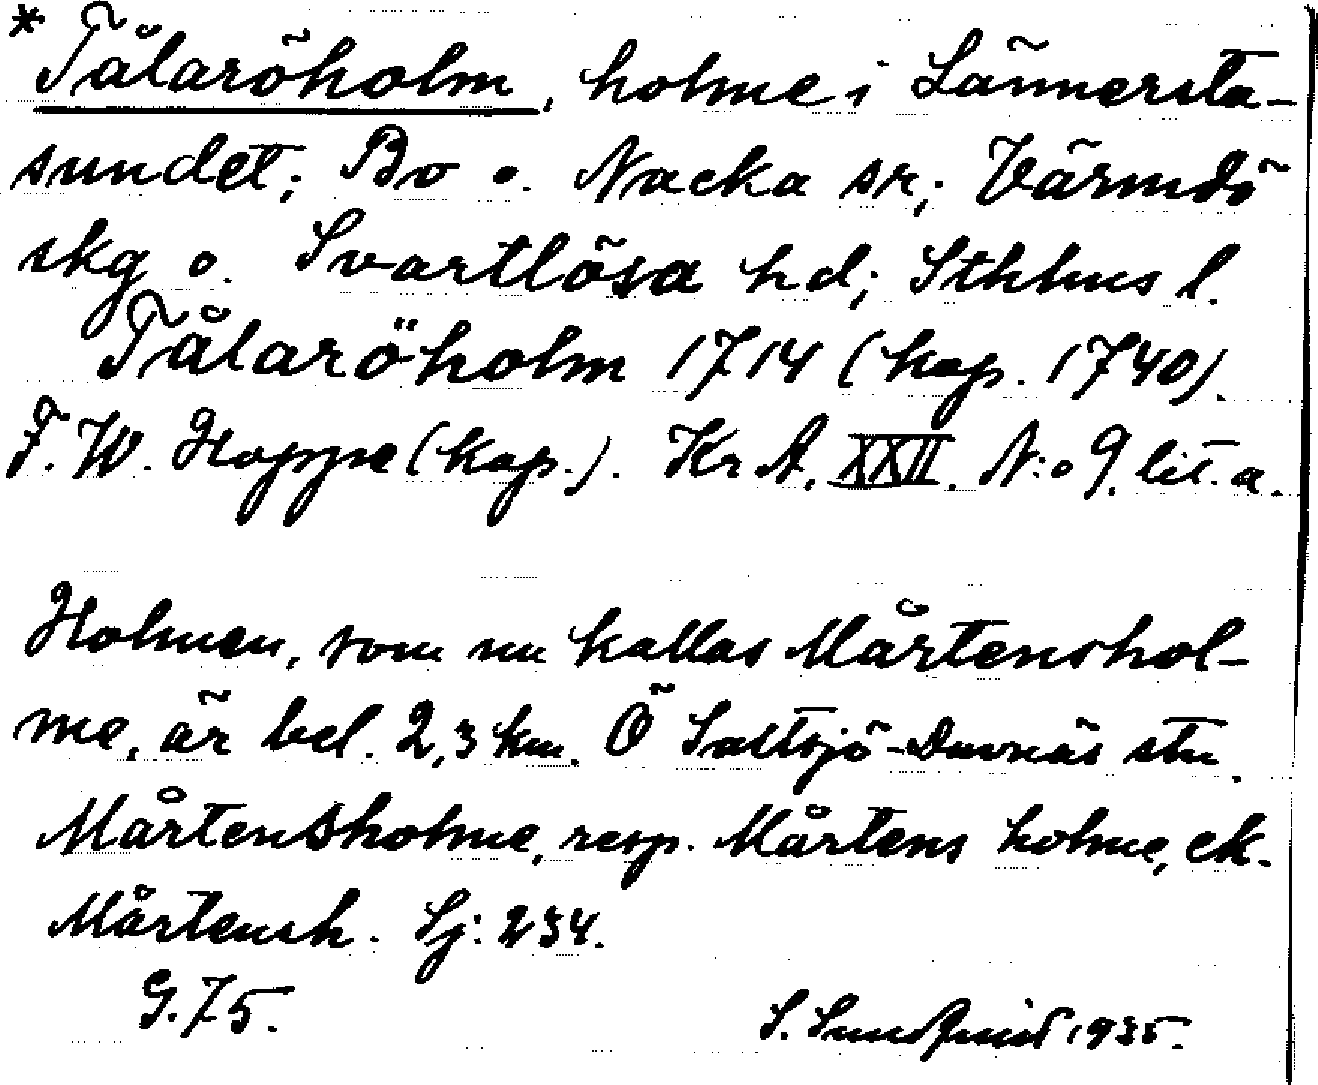 * Tålaröholm, holme i Lännersta-
sundet; Bo o. Nacka sr; Värmdö
skg o. Svartlösa hd; Sthlms l.
Tålaröholm 1714 (kop. 1740).
F. W. Hoppe (kop.). Kr A. XXII. N:o 9. lit. a.
Holmen, som nu kallas Mårtenshol-
me, är bel. 2,3 km. Ö Saltsjö-Duvnäs stn.
Mårtensholme, resp. Mårtens holme, ek.
Mårtensh. Sj: 234.
G. 75.
S. Sundqvist 1935.